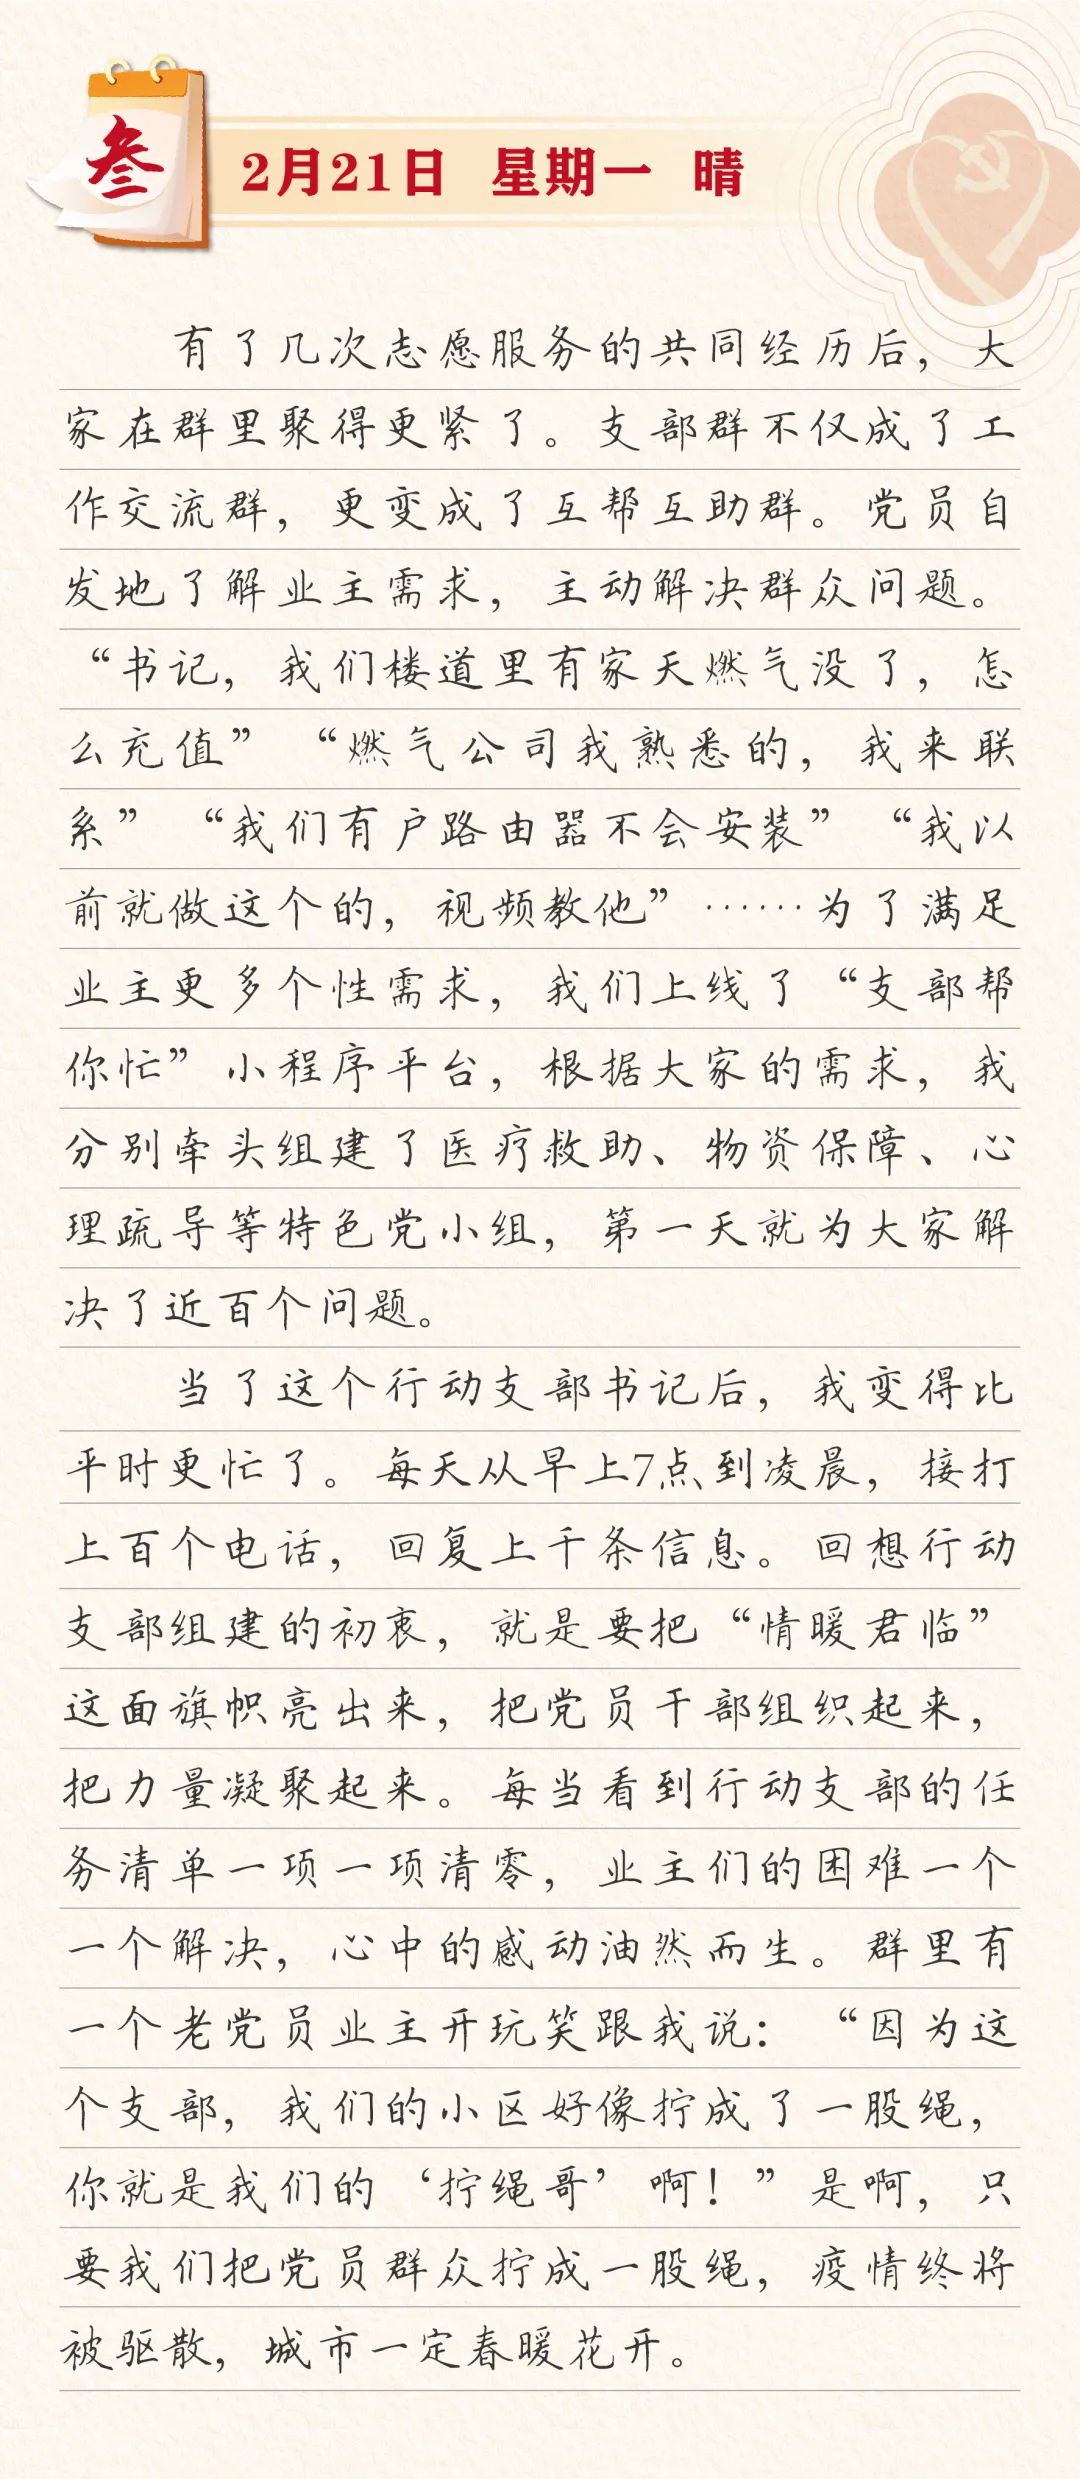 叁
2月21日 星期一 晴
有了几次志愿服务的共同经历后，大
家在群里聚得更紧了。支部群不仅成了工
作交流群，更变成了互帮互助群。党员自
发地了解业主需求，主动解决群众问题。
“书记，我们楼道里有家天燃气没了，怎
么充值”“燃气公司我熟悉的，我来联
系”“我们有户路由器不会安装”“我以
前就做这个的，视频教他”……为了满足
业主更多个性需求，我们上线了“支部帮
你忙”小程序平台，根据大家的需求，我
分别牵头组建了医疗救助、物资保障、心
理疏导等特色党小组，第一天就为大家解
决了近百个问题。
当了这个行动支部书记后，我变得比
平时更忙了。每天从早上7点到凌晨，接打
上百个电话，回复上千条信息。回想行动
支部组建的初衷，就是要把“情暖君临”
这面旗帜亮出来，把党员干部组织起来，
把力量凝聚起来。每当看到行动支部的任
务清单一项一项清零，业主们的困难一个
一个解决，心中的感动油然而生。群里有
一个老党员业主开玩笑跟我说：“因为这
个支部，我们的小区好像拧成了一股绳，
你就是我们的‘拧绳哥’啊！”是啊，只
要我们把党员群众拧成一股绳，疫情终将
被驱散，城市一定春暖花开。